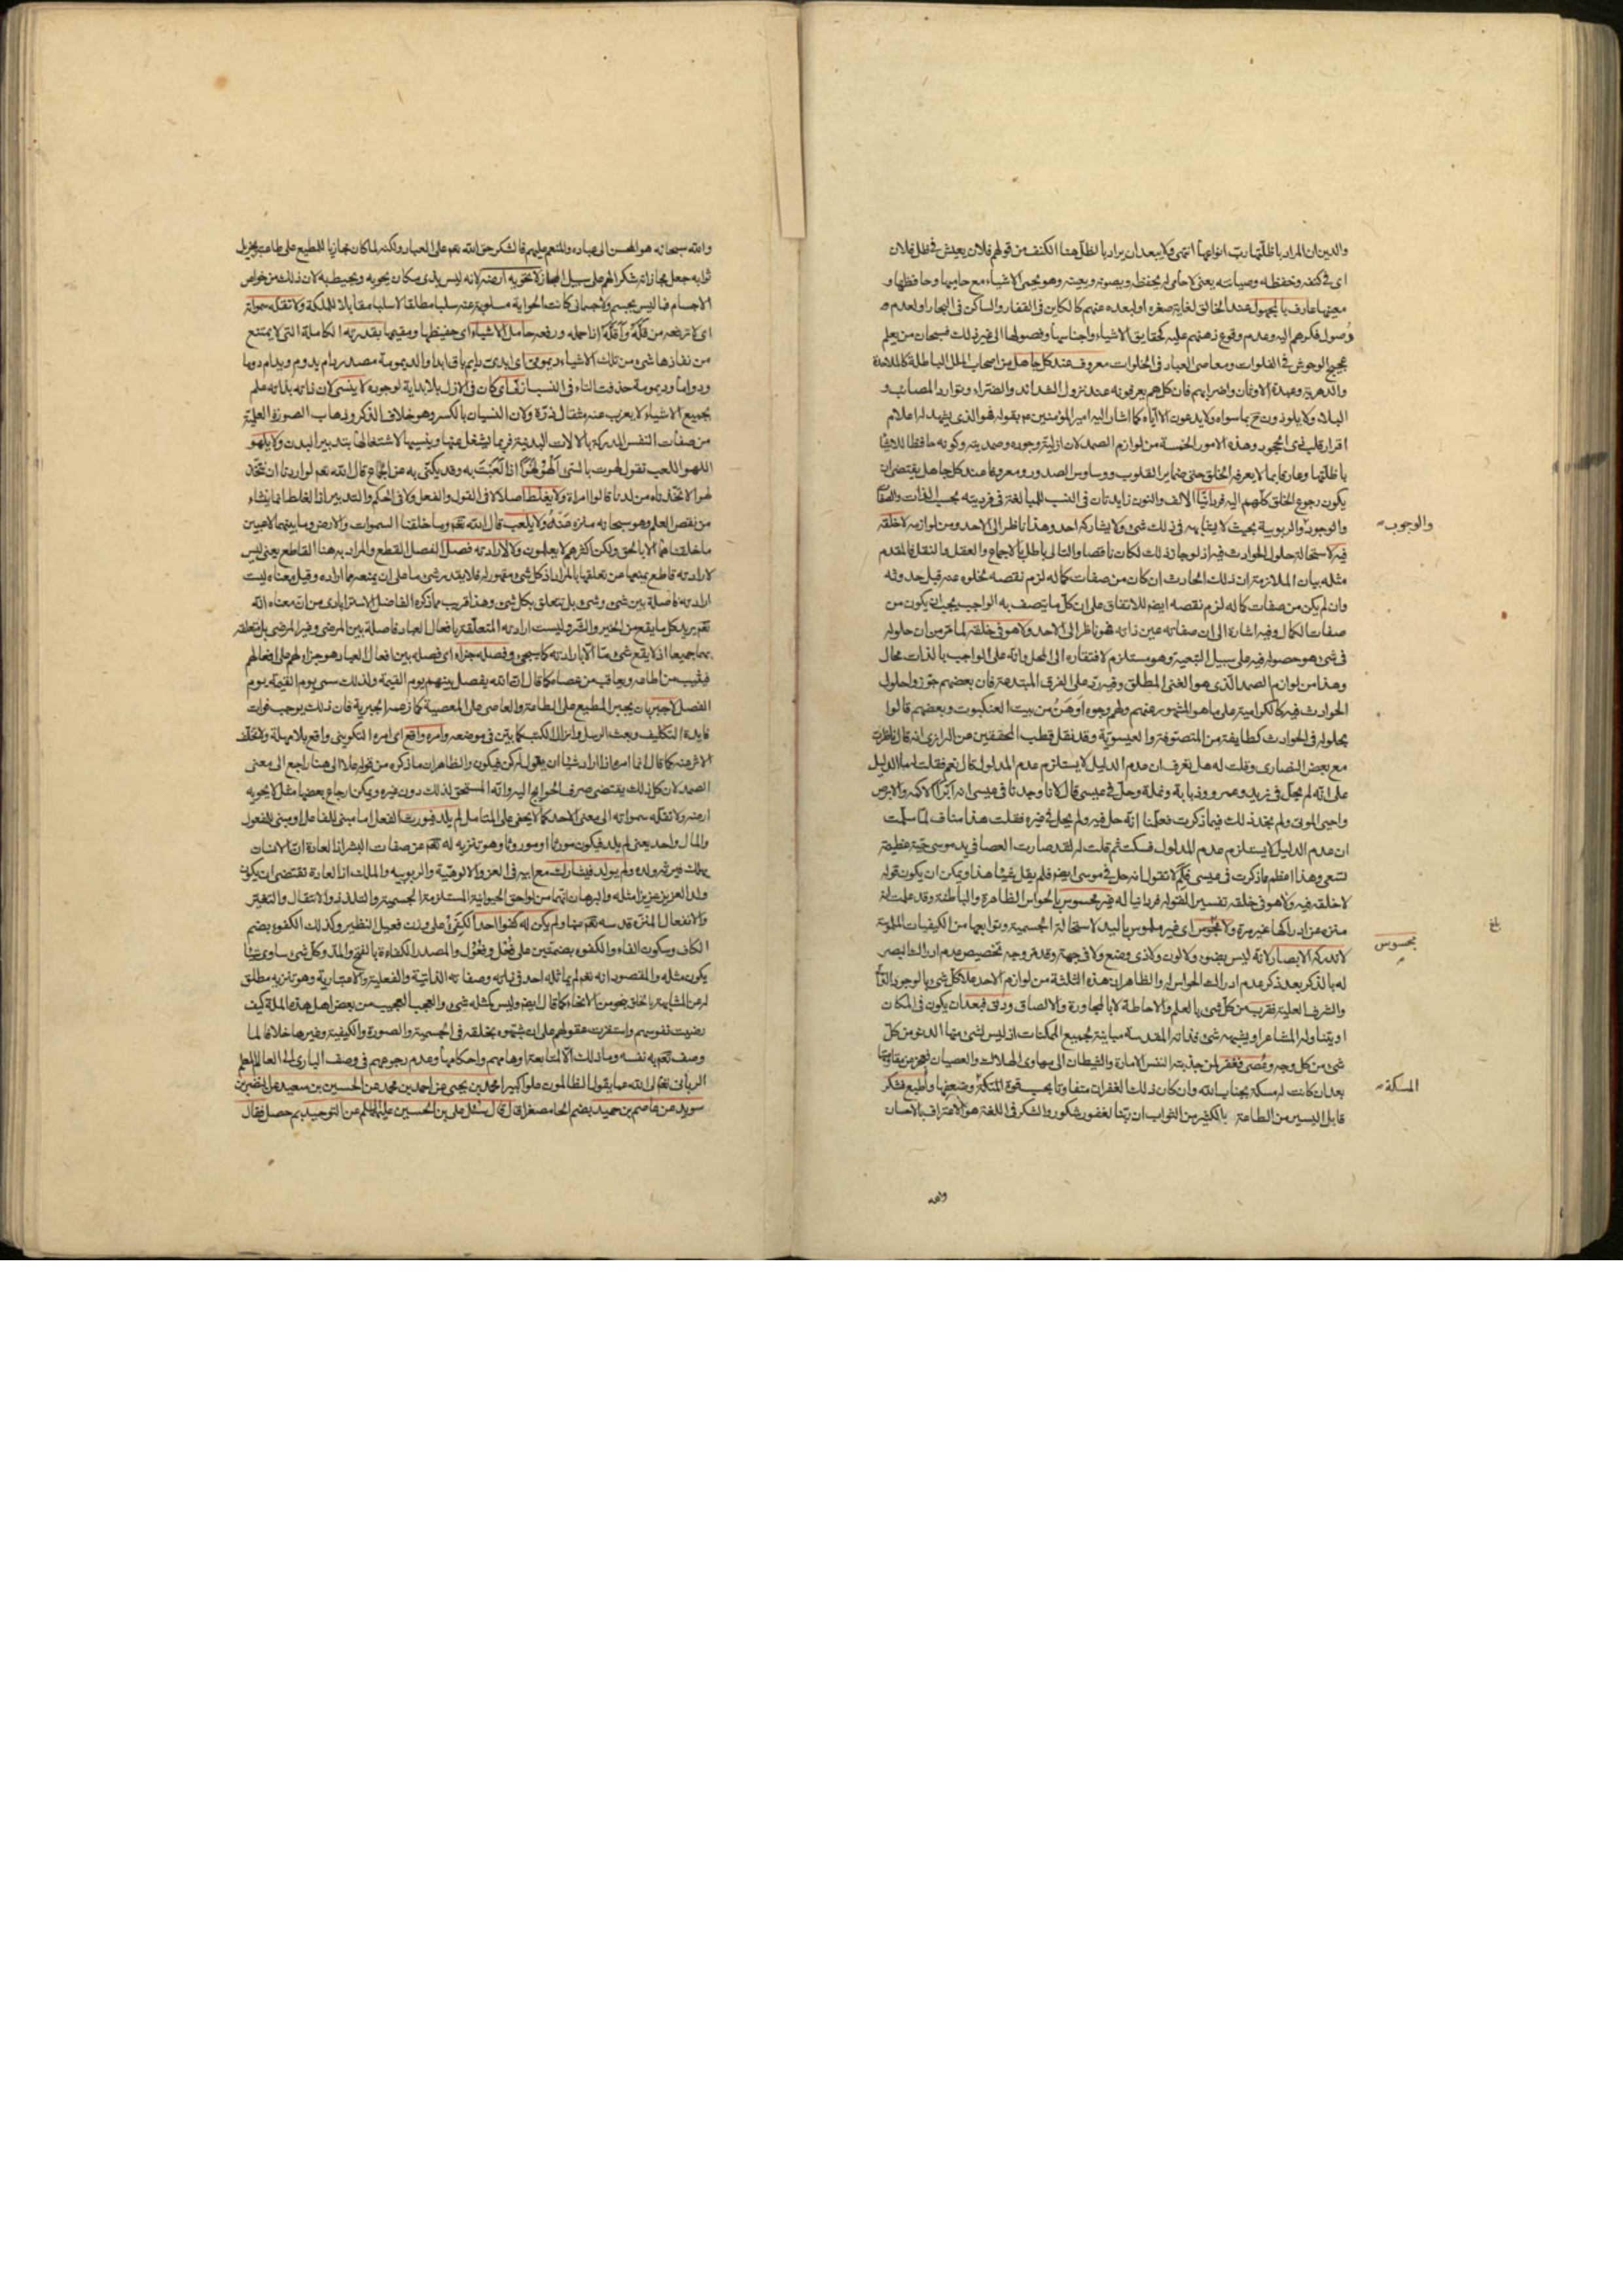 والدين ان المراد باظلتها رب انواعها انتهى ولا يبعد ان يراد بالظل هنا الكنف من قولهم فلان يعيش في ظل فلان
اى فى كنفه وحفظه وصيانته يعنى لا حامى له يحفظه ويصونه ويعينه وهو يحمى الاشياء مع حاميها وحافظها و
معينها عارف بالمجهول عند الخالق لغاية صغره او لبعده عنهم كالكاين فى القفار والساكن فى البحار او لعدم
وصول فكرهم اليه وعدم وقوع ذهنهم عليه كحقايق الاشياء واجناسها وفصولها الى غير ذلك فسبحان من يعلم
عجيج الوحوش فى الفلوات ومعاصى العباد فى الخلوات معروف عند كل جاهل من اصحاب الملل الباطلة كالملاحدة
والدهرية وعبدة الاوثان واضرابهم فان كلهم يعرفونه عند نزول الشدائد والضراء وتوارد المصائب و
البلاء ولا يلوذون ح بما سواه ولا يدعون الا اياه كما اشار اليه امير المؤمنين ع بقوله فهو الذى يشهد له اعلام
اقرار قلب ذى الجحود وهذه الامور الخمسة من لوازم الصمد لان ازلية وجوده وصمديته وكونه حافظا للاشيا
باظلتها وعارفا بما لا يعرفه الخلق حتى ضماير القلوب ووساوس الصدور ومعروفا عند كل جاهل يقتضى ان
يكون رجوع الخلق كلهم اليه فردانيا الالف والنون زايدتان فى النسب للمبالغة فى فرديته بحسب الذات والصفات
والوجود والربوبية بحيث لا يشابهه فى ذلك شئ ولا يشاركه احد وهذا ناظر الى الاحد ومن لوازمه لا خلقه
والوجوب
فيه لاستحالة حلول الحوادث فيه اذ لو جاز ذلك لكان ناقصا والتالى باطل بالاجماع والعقل والنقل فالمقدم
مثله بيان الملازمة ان ذلك الحادث ان كان من صفات كماله لزم نقصه لخلوه عنه قبل حدوثه
وان لم يكن من صفات كماله لزم نقصه ايضا للاتفاق على ان كل ما يتصف به الواجب يجب ان يكون من
صفات الكمال وفيه اشارة الى ان صفاته عين ذاته فهو ناظر الى الاحد ولا هو فى خلقه لما مر من ان حلوله
فى شئ هو حصوله فيه على سبيل التبعية وهو مستلزم لافتقاره الى المحل وانه على الواجب بالذات محال
وهذا من لوازم الصمد الذى هو الغنى المطلق وفيه رد على الفرق المبتدعة فان بعضهم جوزوا حلول
الحوادث فيه كالكرامية على ما هو المشهور عنهم ولهم وجوه اوهن من بيت العنكبوت وبعضهم قالوا
بحلوله فى الحوادث كطايفة من المتصوفة والعيسوية وقد نقل قطب المحققين عن الرازى انه قال ناظرت
مع بعض النصارى وقلت له هل تعرف ان عدم الدليل لا يستلزم عدم المدلول قال نعم فقلت له ما الدليل
على انه لم يحل فى زيد وعمرو وذبابة ونملة وحل فى عيسى قال لانا وجدنا فى عيسى انه ابرأ الاكمه والابرص
واحيى الموتى ولم نجد ذلك فيما ذكرت فعلمنا انه حل فيه ولم يحل فى غيره فقلت هذا مناف لما سلمت
ان عدم الدليل لا يستلزم عدم المدلول فسكت ثم قلت له لقد صارت العصا فى يد موسى حية عظيمة
تسعى وهذا اعظم مما ذكرت فى عيسى فلم لا تقول انه حل فى موسى ايضا فلم يقل شيئا هذا ويمكن ان يكون قوله
لا خلقه فيه ولا هو فى خلقه تفسيرا لقوله فردانيا له غير محسوس بالحواس الظاهرة والباطنة وقد علمت انه
منزه عن ادراكها غير مرة ولا مجسوس اى غير ملموس باليد لاستحالة الجسمية وتوابعها من الكيفيات الملموسة
بلغ
لا تدركه الابصار لانه ليس بضوء ولا لون ولا ذى وضع ولا فى جهة وقد مر وجه تخصيص عدم ادراك البصر
محسوس
له بالذكر بعد ذكر عدم ادراك الحواس له والظاهر ان هذه الثلثة من لوازم الاحد علا كل شئ بالوجود الذاتى
والشرف العلية فقرب من كل شئ بالعلم والاحاطة لا بالمجاورة والالصاق ودنى فبعد ان يكون فى المكان
او يتناوله المشاعر او يشبهه شئ فذاته المقدسة مباينة لجميع الممكنات اذ ليس لشئ منها الدنو من كل
شئ من كل وجه وعصى فغفر لمن جذبته النفس الامارة والشيطان الى مهاوى الهلاك والعصيان
بعد ان كانت له مسكة بجناب الله وان كان ذلك الغفران متفاوتا بحسب قوة المسكة وضعفها واطيع فشكر
المسكة
قابل اليسير من الطاعة بالكثير من الثواب ان ربنا لغفور شكور والشكر فى اللغة هو الاعتراف بالاحسان
والله
والله سبحانه هو المحسن الى عباده والمنعم عليهم فالشكر حق الله تعم على العباد ولكنه لما كان مجازيا للمطيع على طاعته بجزيل
ثوابه جعل مجازاته شكرا لهم على سبيل المجاز لا تحويه ارضه لانه ليس بذى مكان يحويه ويحيط به لان ذلك من خواص
الاجسام فما ليس بجسم ولا جسمانى كانت الحواية مسلوبة عنه سلبا مطلقا لا سلبا مقابلا للملكة ولا تقله سمواته
اى لا ترفعه من قله واقله اذا حمله ورفعه حامل الاشياء اى حفيظها ومقيمها بقدرته الكاملة التى لا يمتنع
من نفاذها شئ من تلك الاشياء ديمومى اى ابدى دايم باق ابدا والديمومة مصدر دام يدوم ويدام دوما
ودواما وديمومة حذفت التاء فى النسب ازلى اى كان فى الازل بلا بداية لوجوده لا ينسى لان ذاته بذاته علم
بجميع الاشياء لا يعزب عنه مثقال ذرة ولان النسيان بالكسر وهو خلاف الذكر وذهاب الصورة العلمية
من صفات النفس المدركة بالالات البدنية فربما يشغل عنها وينسيها لاشتغالها بتدبير البدن ولا يلهو
اللهو اللعب تقول لهوت بالشئ الهو لهوا اذا لعبت به وقد يكنى به عن الجماع قال الله تعم لو اردنا ان نتخذ
لهوا لاتخذناه من لدنا قالوا امراة ولا يغلط اصلا لا فى القول والفعل ولا فى الحكم والتدبير اذ الغلط انما ينشاء
من نقص العلم وهو سبحانه منزه عنه ولا يلعب قال الله تعم وما خلقنا السموات والارض وما بينهما لاعبين
ما خلقناهما الا بالحق ولكن اكثرهم لا يعلمون ولا لارادته فصل الفصل القطع والمراد به هنا القاطع يعنى ليس
لارادته قاطع يمنعها عن تعلقها بالمراد اذ كل شئ مقهور له فلا يقدر شئ ما على ان يمنعه مما اراده وقيل معناه ليست
ارادته فاصلة بين شئ وشئ بل تتعلق بكل شئ وهذا قريب مما ذكره الفاضل الاسترابادى من ان معناه انه
تعم يريد كل ما يقع من الخير والشر وليست ارادته المتعلقة بافعال العباد فاصلة بين المرضى وغير المرضى بل متعلقة
بهما جميعا اذ لا يقع شئ منا الا بارادته كما سيجئ وفصله جزاء اى فصله بين افعال العباد هو جزاء لهم على افعالهم
فيثيب من اطاعه ويعاقب من عصاه كما قال ان الله يفصل بينهم يوم القيمة ولذلك سمى يوم القيمة يوم
الفصل لا جبر بان يجبر المطيع على الطاعة والعاصى على المعصية كما زعمه الجبرية فان ذلك يوجب فوات
فايدة التكليف وبعث الرسل وانزال الكتب كما بين فى موضعه وامره واقع اى امره التكوينى واقع بلا مهلة ولا تخلف
الاثر عنه كما قال انما امره اذا اراد شيئا ان يقول له كن فيكون والظاهر ان ما ذكره من قوله علا الى هنا راجع الى معنى
الصمد لان كل ذلك يقتضى صرف الحوايج اليه وانه المستحق لذلك دون غيره ويمكن ارجاع بعضها مثل لا يحويه
ارضه ولا تقله سمواته الى معنى الاحد كما لا يخفى على المتامل لم يلد فيورث الفعل اما مبنى للفاعل او مبنى للمفعول
والمال واحد يعنى لم يلد فيكون مورثا او موروثا وهو تنزيه له تعم عن صفات البشر اذ العادة ان الانسان
يهلك فيرثه ولده ولم يولد فيشارك مع ابيه فى العز والالوهية والربوبية والملك اذ العادة تقتضى ان يكون
ولد العزيز عزيزا مثله والبرهان انهما من لواحق الحيوانية المستلزمة للجسمية والتلذذ والانتقال والتغير
والانفعال المنزه قدسه تعم عنها ولم يكن له كفوا احد الكفئ على وزن فعيل النظير وكذلك الكفوء بضم
الكاف وسكون الفاء والكفوء بضمتين على فعل وفعول والمصدر الكفاءة بالفتح والمد وكل شئ ساوى شيئا
يكون مثله والمقصود انه تعم لم يماثله احد فى ذاته وصفاته الذاتية والفعلية والاعتبارية وهو تنزيه مطلق
له عن المشابهة بالخلق بنحو من الانحاء كما قال ايضا وليس كمثله شئ والعجب العجيب من بعض اهل هذه الملة كيف
رضيت نفوسهم واستقرت عقولهم على ان شبهوه بخلقه فى الجسمية والصورة والكيفية وغيرها خلافا لما
وصف تعم به نفسه وما ذلك الا لمتابعة اوهامهم واحكامها وعدم رجوعهم فى وصف البارى الى العالم المعلم
الربانى تعم الله عما يقول الظالمون علوا كبيرا محمد بن يحيى عن احمد بن محمد عن الحسين بن سعيد عن النضر بن
سويد عن عاصم بن حميد بضم الحا مصغرا قال قال سئل على بن الحسين عليهما السلم عن التوحيد فقال